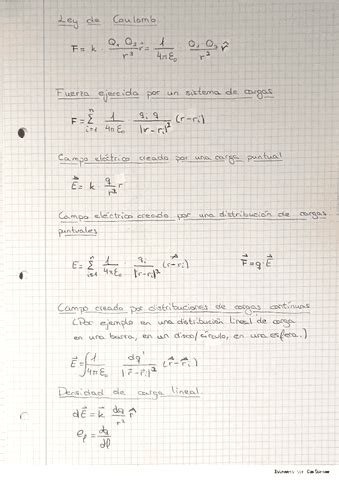 Ley de Coulomb
F = k · Q₁ Q₂ / r³ r⃗ = 1 / 4πε₀ · Q₁ Q₂ / r² r̂
Fuerza ejercida por un sistema de cargas
F = Σⁿᵢ₌₁ 1 / 4πε₀ · qᵢ q / |r - rᵢ|³ (r - rᵢ)
Campo eléctrico creado por una carga puntual
E⃗ = k · q / r³ r
Campo eléctrico creado por una distribución de cargas
puntuales
E = Σⁿᵢ₌₁ 1 / 4πε₀ · qᵢ / |r - rᵢ|³ (r⃗ - rᵢ) F⃗ = q · E⃗
Campo creado por distribuciones de cargas continuas
(Por ejemplo en una distribución lineal de carga
en una barra, en un disco/círculo, en una esfera..)
E⃗ = ∫ 1 / 4πε₀ dq' / |r⃗ - r⃗ᵢ|³ (r⃗ - r⃗ᵢ)
Densidad de carga lineal
dE⃗ = k dq / r² r̂
ρₗ = dq / dl